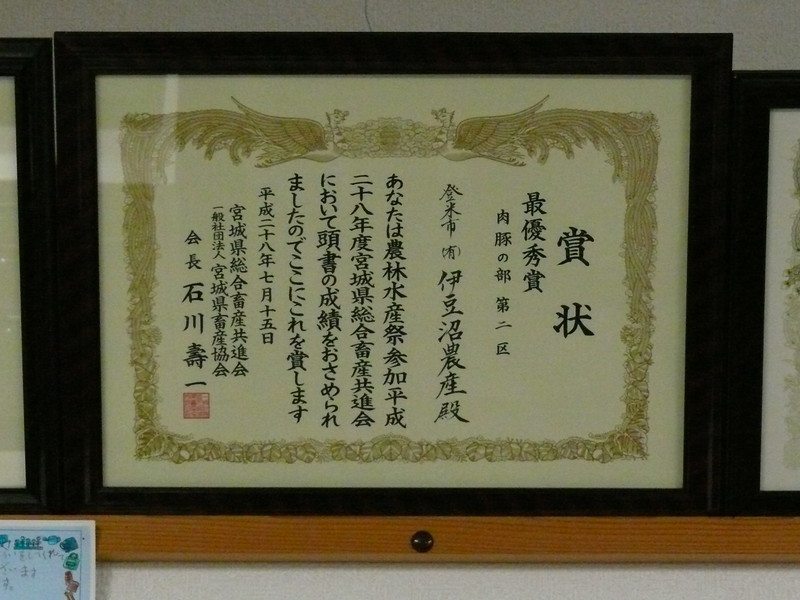 賞状
最優秀賞
肉豚の部 第二区
登米市 (有) 伊豆沼農産殿
あなたは農林水産祭参加平成
二十八年度宮城県総合畜産共進会
において頭書の成績をおさめられ
ましたのでここにこれを賞します
平成二十八年七月十五日
宮城県総合畜産共進会
一般社団法人宮城県畜産協会
会長 石川壽一
ざいます
す。